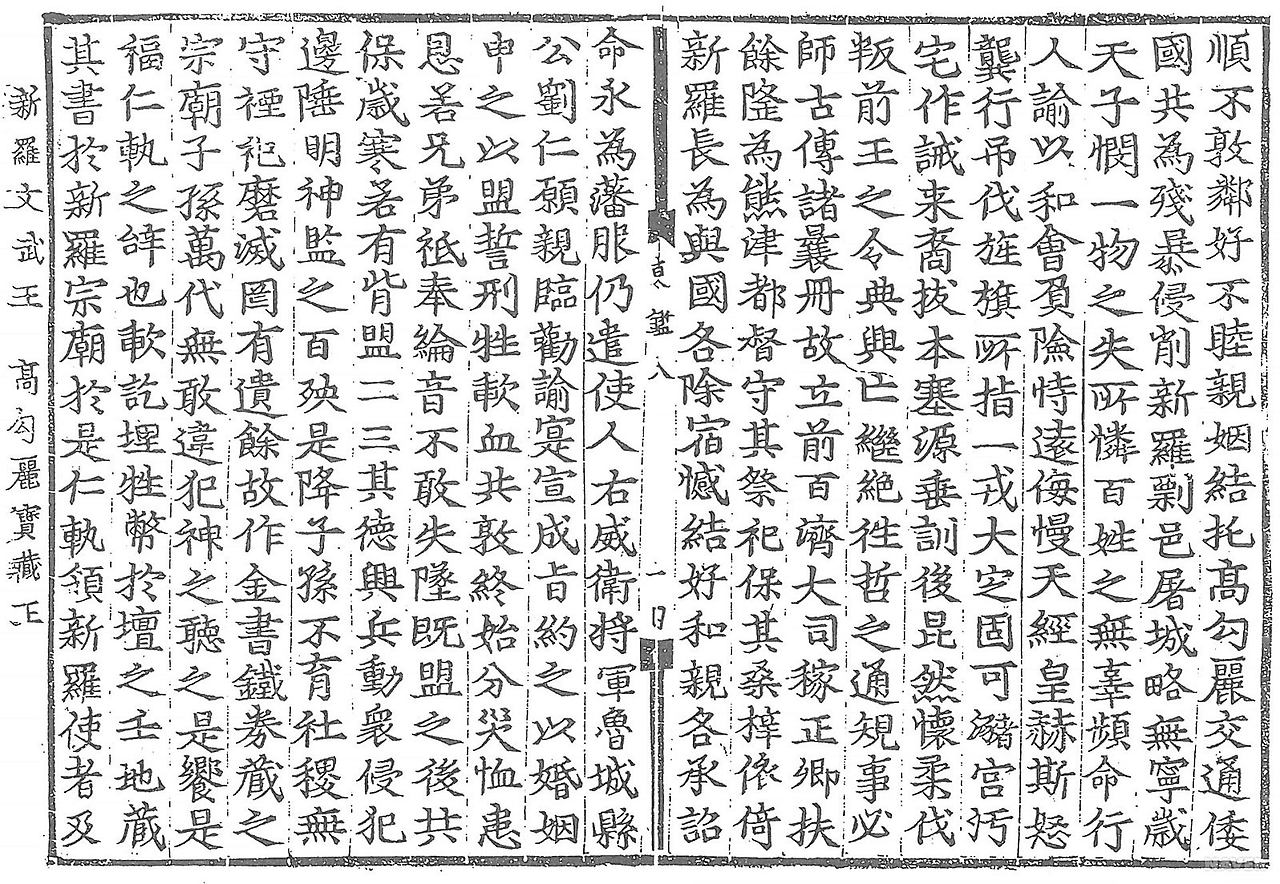 順不敦鄰好不睦親姻結托髙勾麗交通倭
國共為殘暴侵削新羅剽邑屠城略無寧歲
天子憫一物之失所憐百姓之無辜頻命行
人諭以和會負險恃遠侮慢天經皇赫斯怒
龔行吊伐旌旗所指一戎大定固可瀦宮汚
宅作誡来裔拔本塞源垂訓後昆然懷柔伐
叛前王之令典興亡繼絶徃哲之通規事必
師古傳諸曩冊故立前百濟大司稼正卿扶
餘隆為熊津都督守其祭祀保其桑梓依倚
新羅長為與國各除宿憾結好和親各承詔
鑑八
命永為藩服仍遣使人右威衛將軍魯城縣
公劉仁願親臨勸諭寔宣成旨約之以婚姻
申之以盟誓刑牲歃血共敦終始分災恤患
恩若兄弟祗奉綸音不敢失墜既盟之後共
保歲寒若有背盟二三其德興兵動衆侵犯
邊陲明神監之百殃是降子孫不育社稷無
守禋祀磨滅罔有遺餘故作金書鐵券蔵之
宗廟子孫萬代無敢違犯神之聽之是饗是
福仁軌之辝也歃訖埋牲幣於壇之壬地蔵
其書於新羅宗廟於是仁軌領新羅使者及
新羅文武王 髙勾麗寶蔵王